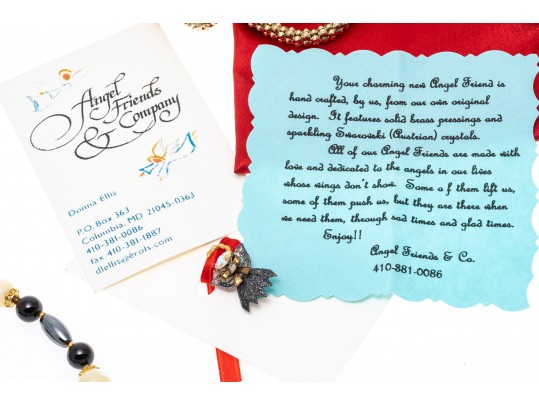 Angel
Friends
& Company
Donna Ellis
P.O. Box 363
Columbia, MD 21045-0363
410-381-0086
fax 410-381-1887
dlellis@erols.com
Your charming new Angel Friend is
hand crafted, by us, from our own original
design. It features solid brass pressings and
sparkling Swarovski (Austrian) crystals.
All of our Angel Friends are made with
love and dedicated to the angels in our lives
whose wings don't show. Some of them lift us,
some of them push us, but they are there when
we need them, through sad times and glad times.
Enjoy!!
Angel Friends & Co.
410-381-0086